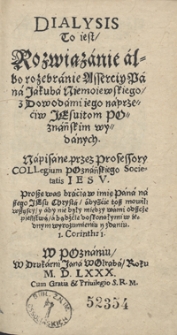 DIALYSIS
To iest/
Rozwiązánie ál-
bo rozebránie Asserciy Pá
ná Jakubá Niemoiewskiego/
z Dowodámi iego náprze-
ciw JEsuitom PO-
znáńskim wy-
dánych.
Nápisáne przez Professory
COLLegium POznáńskiego Socie-
tatis IESV.
Proszę was bracia w imię Páná ná
szego JEsu Chrystá/ ábyście toż mowili
wszyscy/ á by nie były między wámi odszcze
pieństwá/ á bądźcie doskonáłymi w ie-
dnym wyrozumieniu y zdániu.
1. Corinth: 1.
W POznániu/
W Drukárni Janá WOlrábá/ Roku
M. D. LXXX.
Cum Gratia & Priuilegio S. R. M.
52354